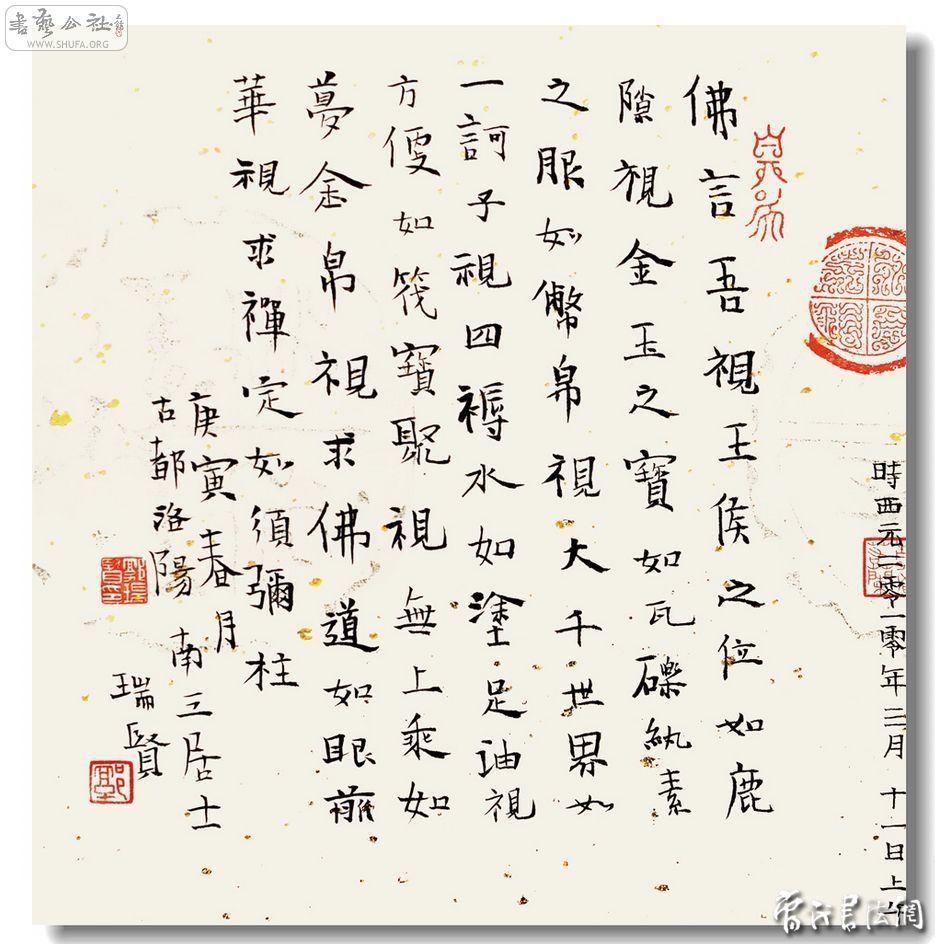 書藝公社
WWW.SHUFA.ORG
時西元二零一零年三月十一日上午
佛言吾視王侯之位如鹿
隙視金玉之寶如瓦礫紈素
之服如幣帛視大千世界如
一訶子視四褥水如塗足油視
方便如筏寶聚視無上乘如
夢金帛視求佛道如眼前
華視求禪定如須彌柱
庚寅春月
古都洛陽南三居士
瑞賢
書法網